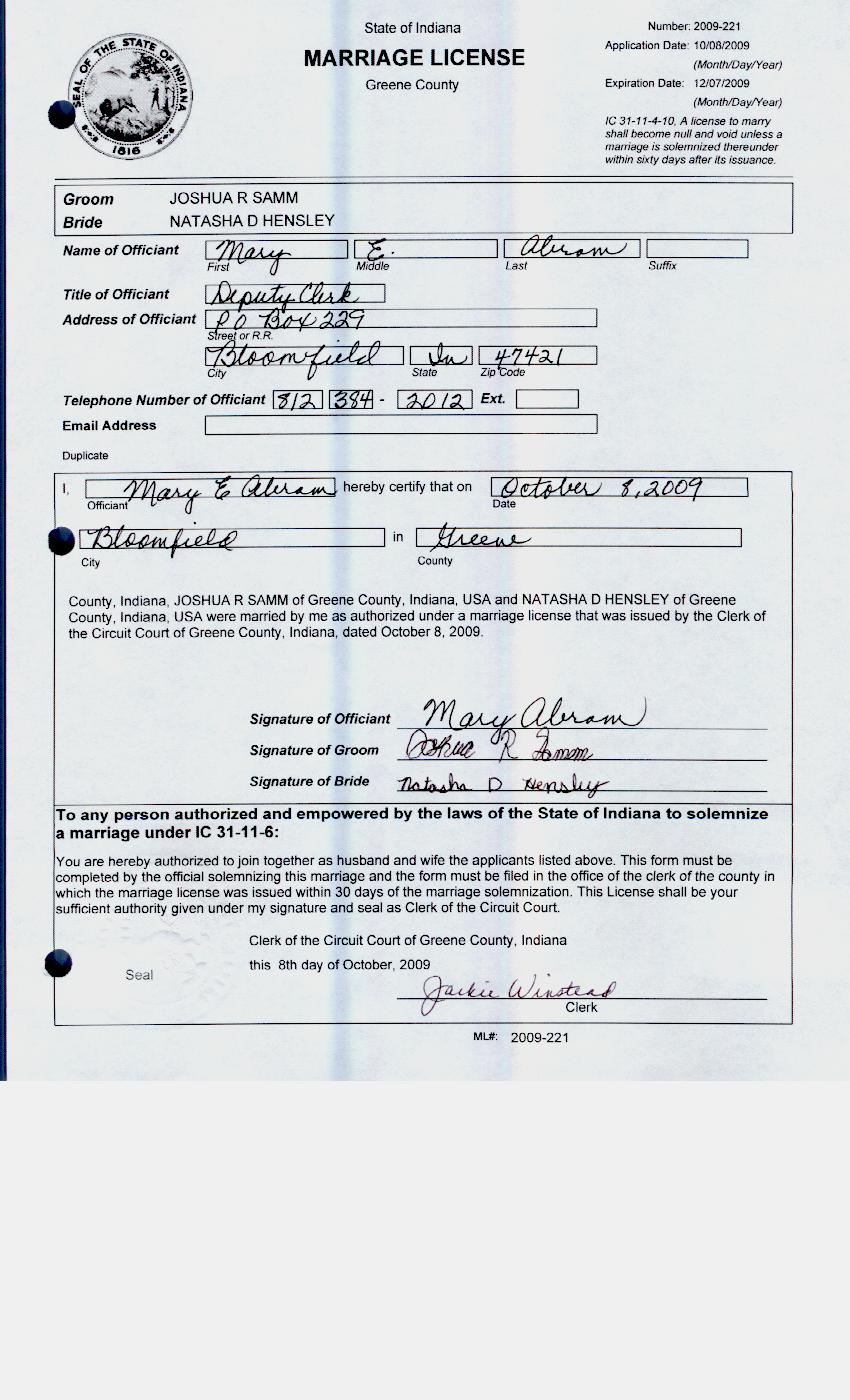 State of Indiana
MARRIAGE LICENSE
Greene County
Number: 2009-221
Application Date: 10/08/2009
(Month/Day/Year)
Expiration Date: 12/07/2009
(Month/Day/Year)
IC 31-11-4-10, A license to marry
shall become null and void unless a
marriage is solemnized thereunder
within sixty days after its issuance.
SEAL OF THE STATE OF INDIANA
1816
Groom JOSHUA R SAMM
Bride NATASHA D HENSLEY
Name of Officiant Mary E. Abram
First Middle Last Suffix
Title of Officiant Deputy Clerk
Address of Officiant PO Box 229
Street or R.R.
Bloomfield In 47421
City State Zip Code
Telephone Number of Officiant 812 384 - 2012 Ext.
Email Address
Duplicate
I, Mary E Abram hereby certify that on October 8, 2009
Officiant Date
Bloomfield in Greene
City County
County, Indiana, JOSHUA R SAMM of Greene County, Indiana, USA and NATASHA D HENSLEY of Greene
County, Indiana, USA were married by me as authorized under a marriage license that was issued by the Clerk of
the Circuit Court of Greene County, Indiana, dated October 8, 2009.
Signature of Officiant Mary Abram
Signature of Groom Joshua R Samm
Signature of Bride Natasha D Hensley
To any person authorized and empowered by the laws of the State of Indiana to solemnize
a marriage under IC 31-11-6:
You are hereby authorized to join together as husband and wife the applicants listed above. This form must be
completed by the official solemnizing this marriage and the form must be filed in the office of the clerk of the county in
which the marriage license was issued within 30 days of the marriage solemnization. This License shall be your
sufficient authority given under my signature and seal as Clerk of the Circuit Court.
Clerk of the Circuit Court of Greene County, Indiana
Seal this 8th day of October, 2009
Jackie Winstead
Clerk
ML#: 2009-221